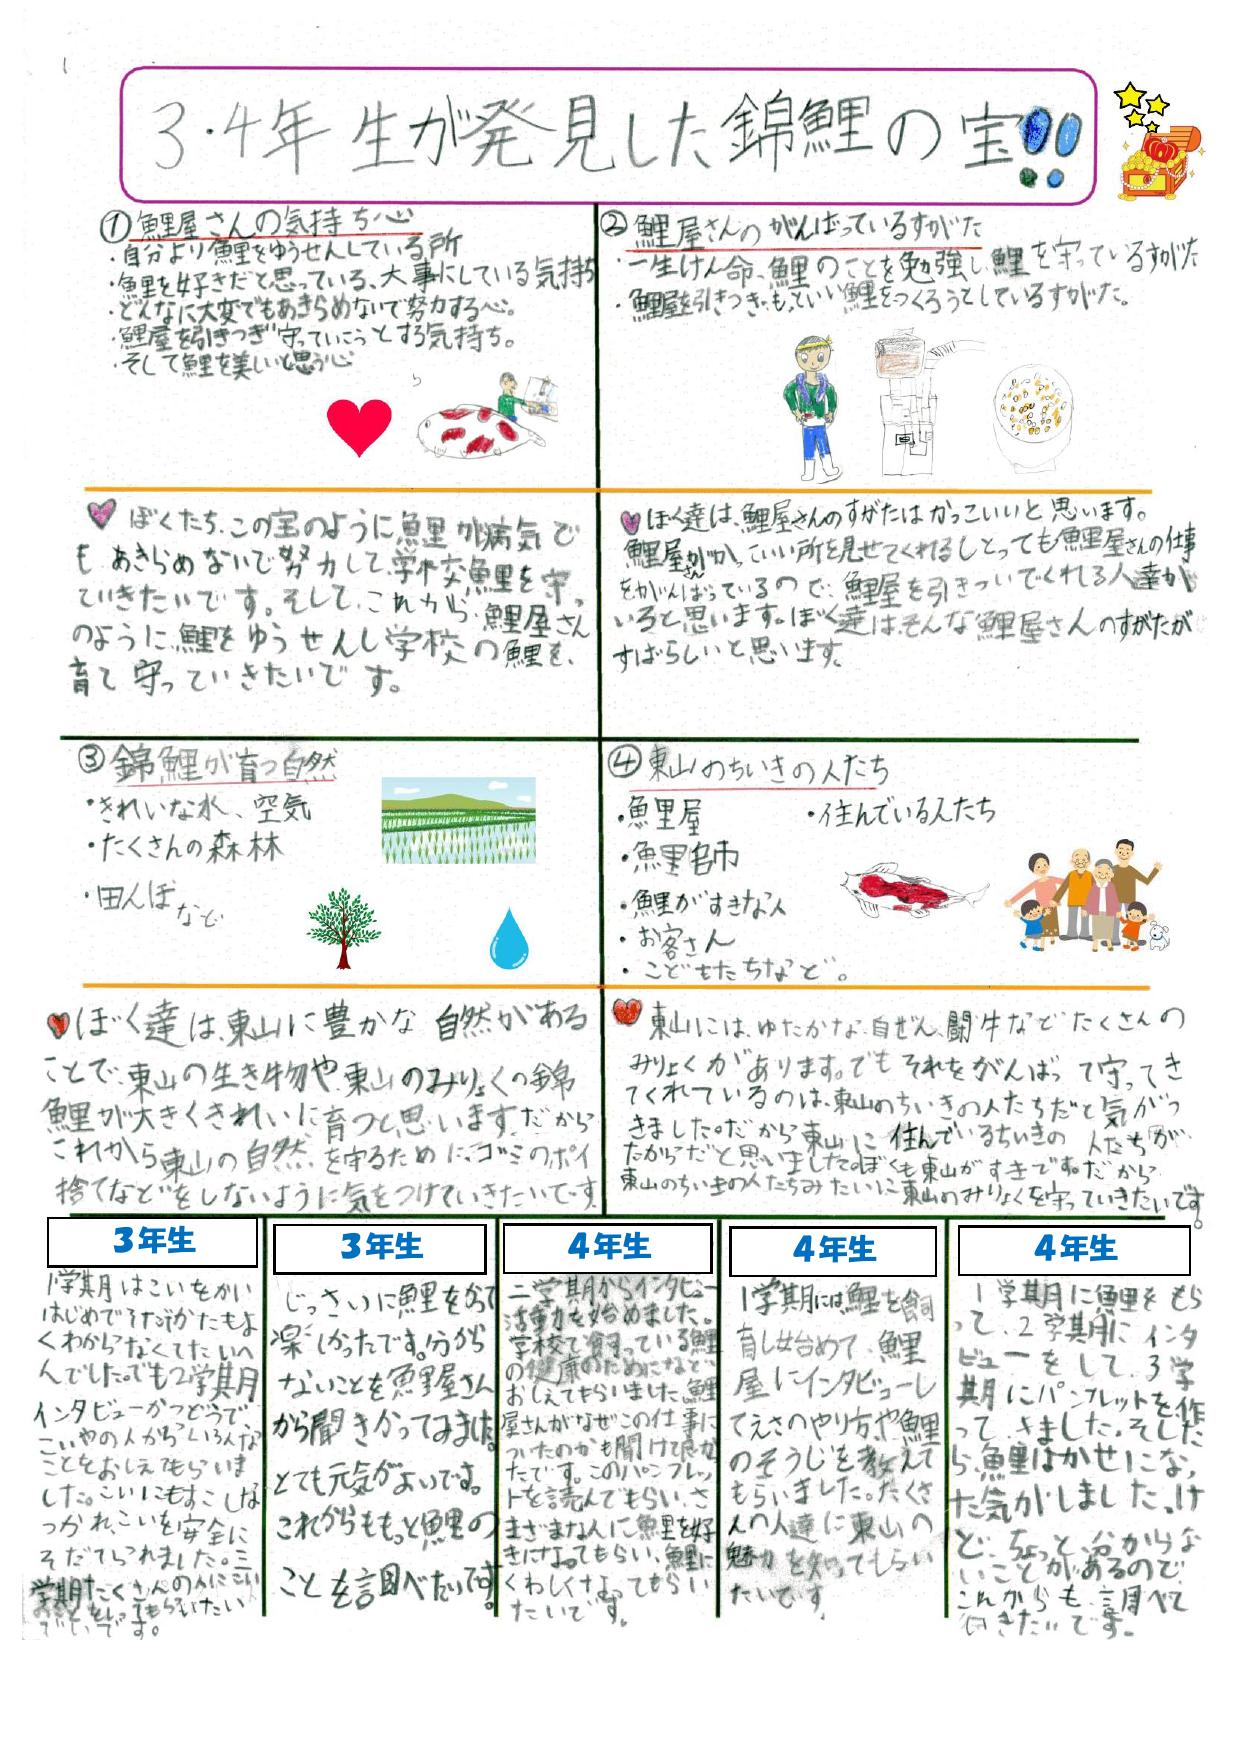 3・4年生が発見した錦鯉の宝!!
①鯉屋さんの気持ち心
・自分より鯉をゆうせんしている所
・鯉を好きだと思っている、大事にしている気持ち
・どんなに大変でもあきらめないで努力する心。
・鯉屋を引きつぎ守っていこうとする気持ち。
・そして鯉を美しいと思う心
♥ぼくたち、この宝のように鯉が病気で
も あきらめないで努力して、学校鯉を守っ
ていきたいです。そして、これから、鯉屋さん
のように、鯉をゆうせんし学校の鯉を、
育て守っていきたいです。
②鯉屋さんのがんばっているすがた
・一生けん命、鯉のことを勉強し、鯉を守っているすがた
・鯉屋を引きつぎ、もっといい鯉をつくろうとしているすがた。
♥ぼく達は、鯉屋さんのすがたはかっこいいと思います。
鯉屋さんがかっこいい所を見せてくれるしとっても鯉屋さんの仕事
をがんばっているので、鯉屋を引きついでくれる人達が
いると思います。ぼく達はそんな鯉屋さんのすがたが
すばらしいと思います。
③錦鯉が育つ自然
・きれいな水、空気
・たくさんの森林
・田んぼなど
♥ぼく達は、東山に豊かな自然がある
ことで、東山の生き物や、東山のみりょくの錦
鯉が大きくきれいに育つと思います。だから
これから東山の自然を守るために、ゴミのポイ
捨てなどをしないように気をつけていきたいです。
④東山のちいきの人たち
・鯉屋
・住んでいる人たち
・鯉名市
・鯉がすきな人
・お客さん
・こどもたちなど。
♥東山には、ゆたかな自ぜん、闘牛などたくさんの
みりょくがあります。でもそれをがんばって守ってき
てくれているのは、東山のちいきの人たちだと気がつ
きました。だから東山に住んでいるちいきの人たちが
たからだと思いました。ぼくも東山がすきです。だから
東山のちいきの人たちみたいに東山のみりょくを守っていきたいです。
3年生
1学期はこいをかい
はじめでそだてかたもよ
くわからなくてたいへ
んでした。でも2学期
インタビューかつどうで
こいやの人からいろんな
ことをおしえてもらいま
した。こいにもすこしな
つかれ、こいを安全に
そだてられました。三
学期たくさんの人にこい
3年生
じっさいに鯉をかって
楽しかったです。分から
ないことを鯉屋さん
から聞きかってみました。
とても元気がよいです。
これからももっと鯉の
ことを調べたいです。
4年生
二学期からインタビュー
活動を始めました。
学校で飼っている鯉
の健康のためになど、
おしえてもらいました。鯉
屋さんがなぜこの仕事に
ついたのかも聞けて良かっ
たです。このパンフレッ
トを読んでもらい、さ
まざまな人に鯉を好
きになってもらい、鯉に
くわしくなってもらい
たいです。
4年生
1学期には鯉を飼
育し始めて、鯉
屋にインタビューし
てえさのやり方や鯉
のそうじを教えて
もらいました。たくさ
んの人達に東山の
魅力を知ってもらい
たいです。
4年生
1学期に鯉をもら
って、2学期にインタ
ビューをして、3学
期にパンフレットを作
ってきました。そした
ら鯉はかせになっ
た気がしました。け
ど、ちょっと、分からな
いことがあるので
これからも、調べて
行きたいです。